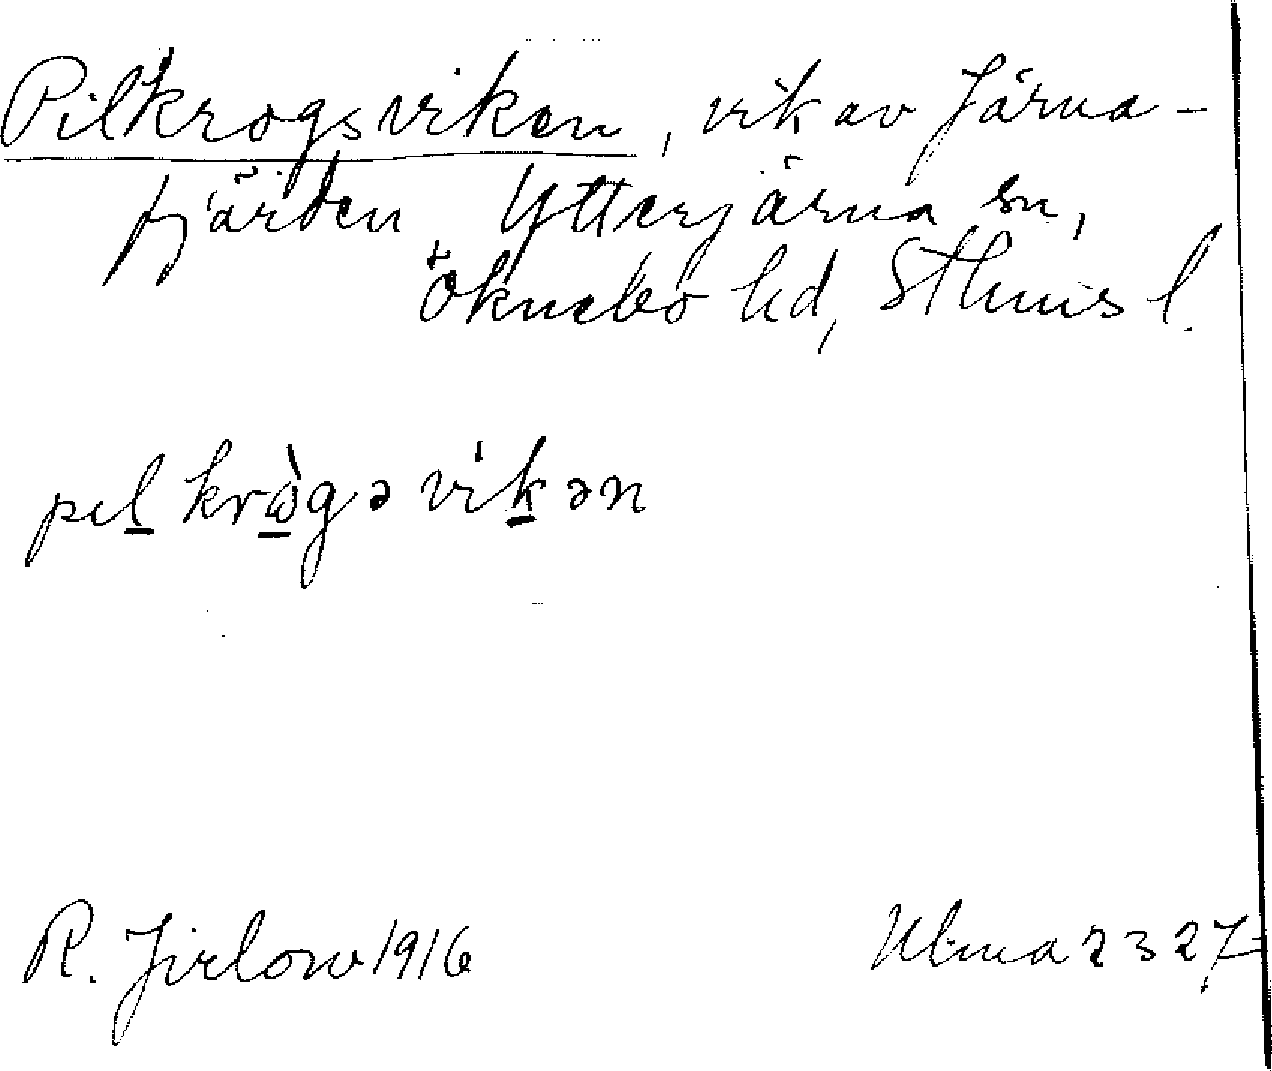 Pilkrogsviken, vik av Järna-
fjärden Ytterjärna sn,
Öknebo hd, Sthms l.
pɩl krɷ̀gə vikən
R. Jirlow 1916
Ulma 2327